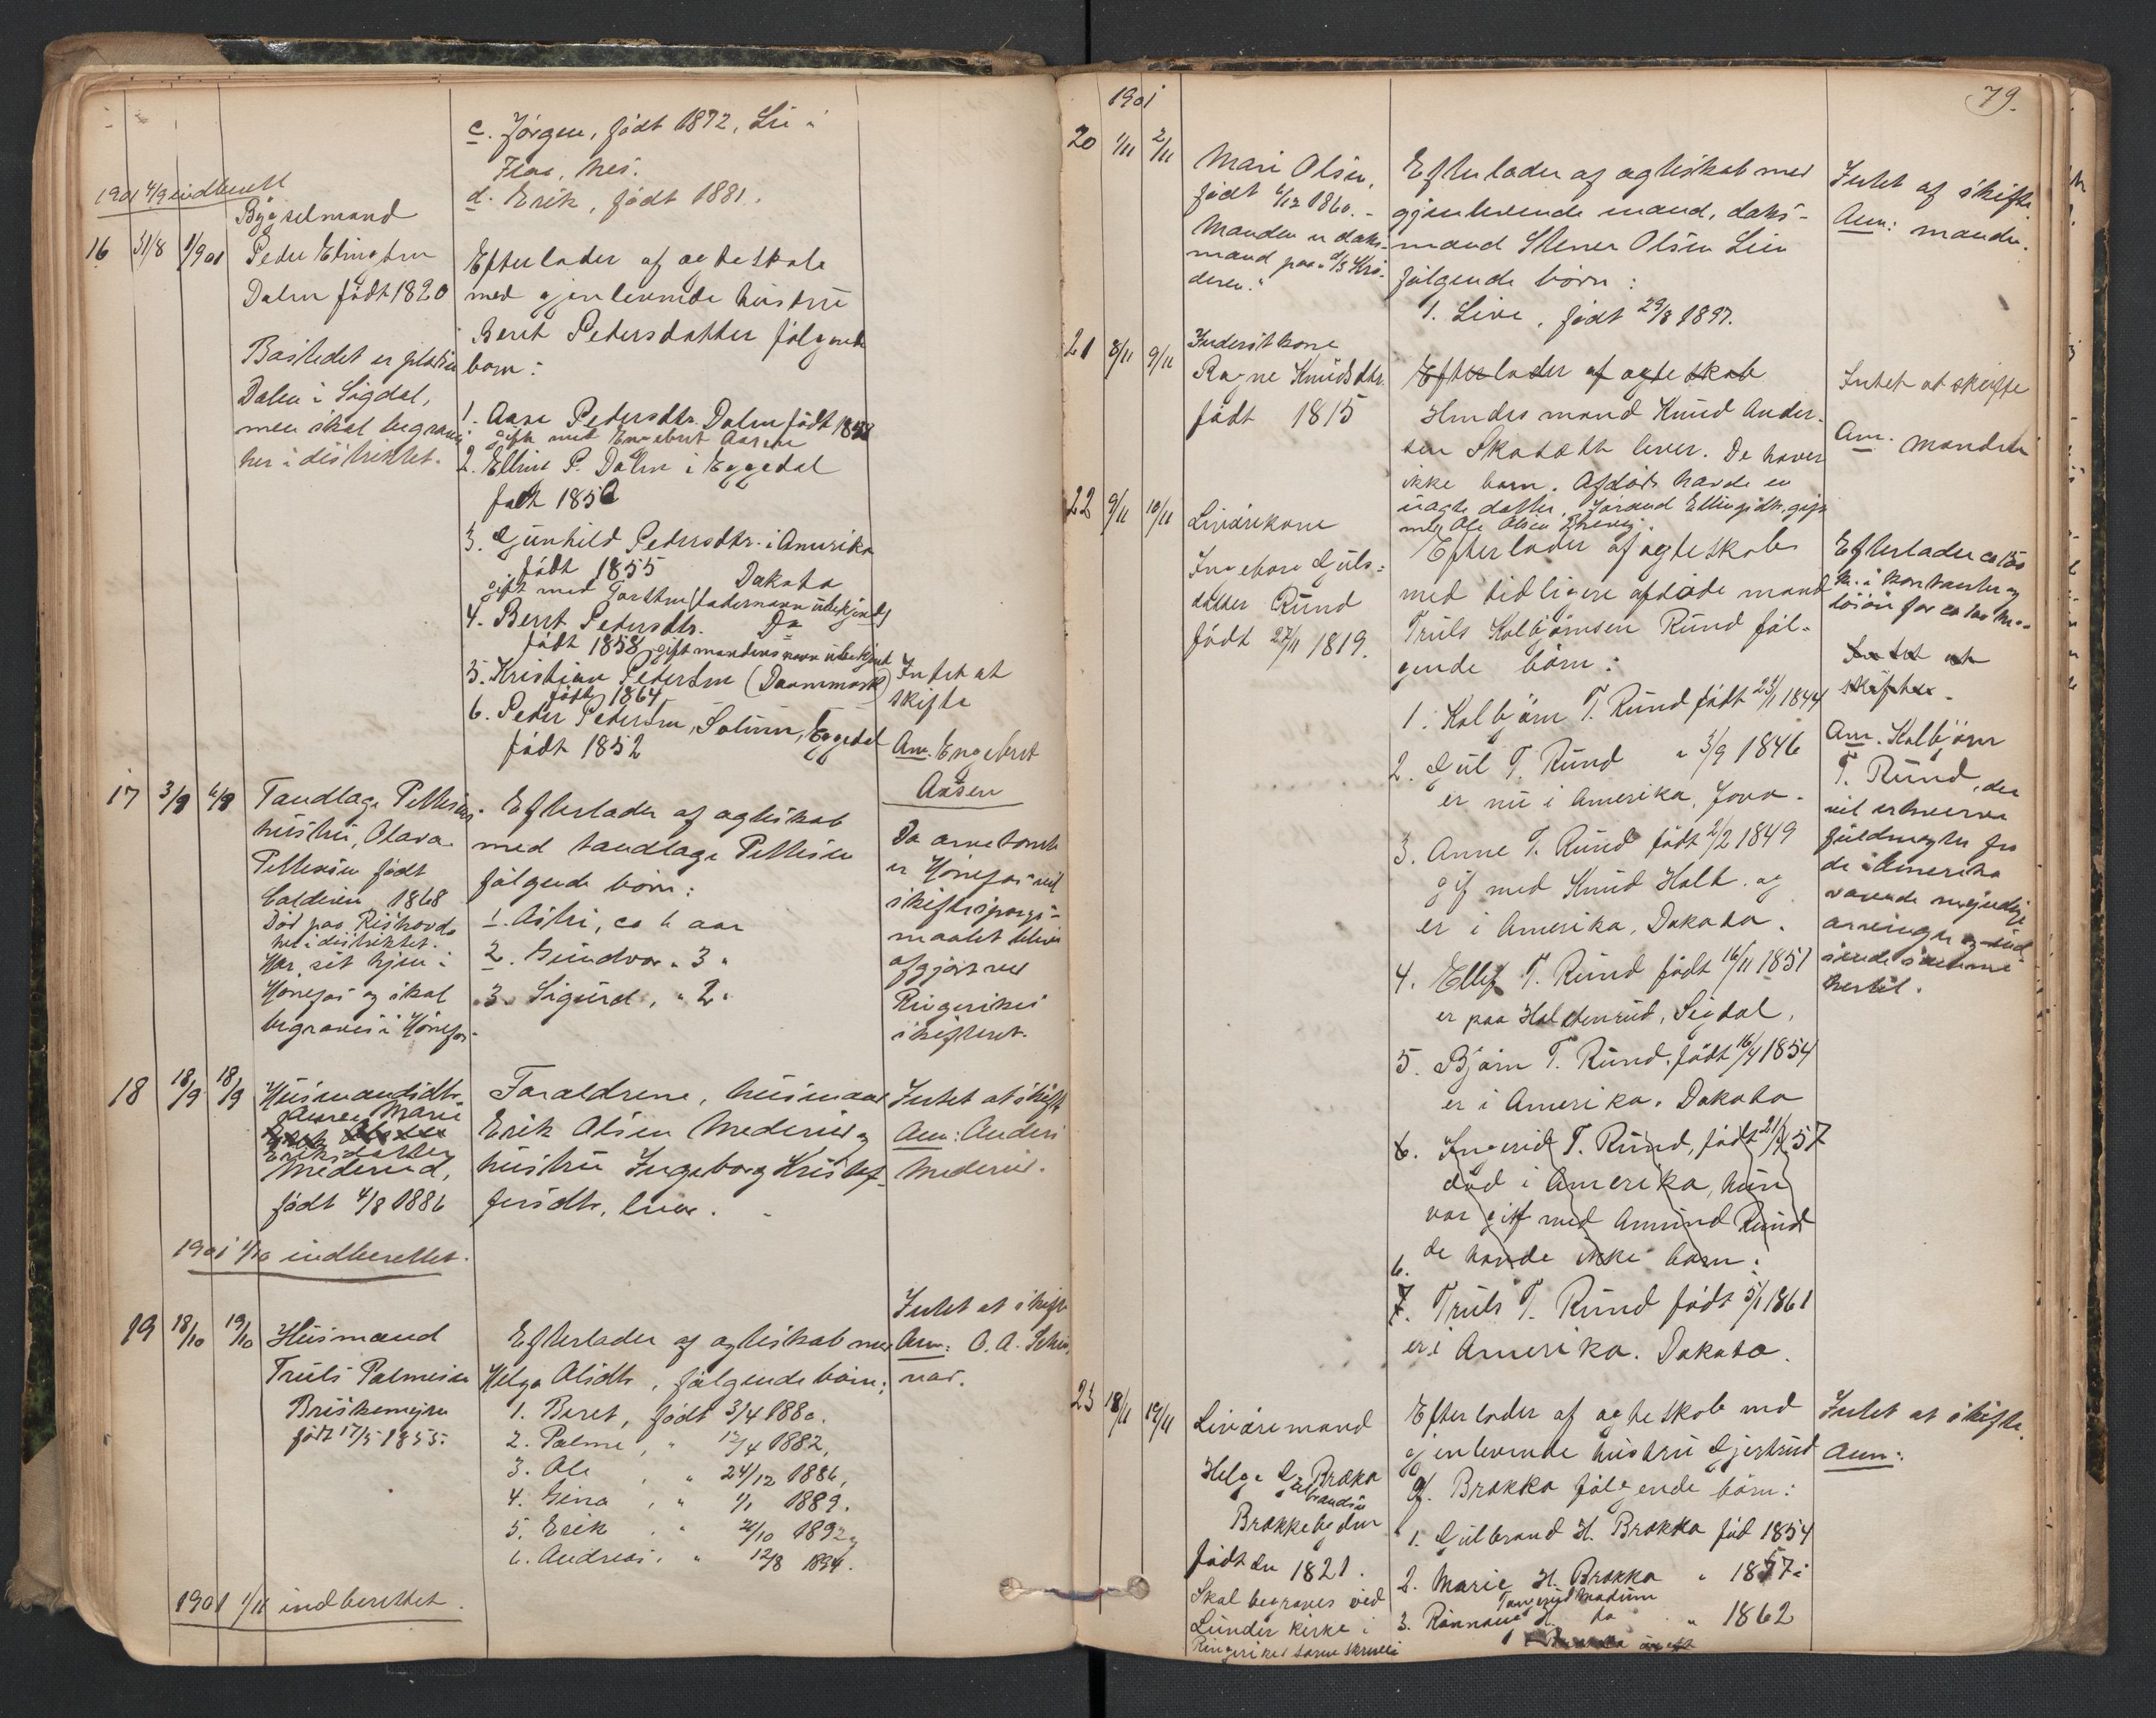 c. Jörgen, födt 1872, Lii i
Flaa, Nes.
d. Erik, födt 1881.
1901 4/9 indberett
16 31/8 1/9 01
Bygselmand
Peder Elingsen
Dalen födt 1820
Bostedet er
Dalen i Sigdal,
men skal begraves
her i distriktet.
Efterlader af ægteskab
med gjenlevende hustru
Berit Pedersdatter fölgende
born:
1. Aase Pedersdtr. Dalen födt
gift med Engebret Aasen
2. Elling P. Dalen i Eggedal
födt 1850
3. Gunhild Pedersdtr. i Amerika
födt 1855 Dakota
gift med Torsten (fadernavn ubekjendt)
4. Berit Pedersdtr. Do
födt 1858 gift mandens navn ubekjent
5. Kristian Pedersen (Danmark)
födt 1864
6. Peder Pedersen, Solum, Eggedal
födt 1852
Intet at
skifte
Am. Engebret
Aasen
17 3/9 6/9
Tandlæge Pettersens
hustru, Olava
Pettersen födt
1868
Död paa Rishovd
her i distriktet.
Har sit hjem i
Hönefos og skal
begraves i Hönefos.
Efterlader af ægteskab
med tandlæge Pettersen
fölgende börn:
1. Astri, ca 6 aar
2. Gundvor " 3 "
3. Sigurd, " 2 "
Da arvetomten
er Hönefos vil
skiftespörgs-
maalet blive
afgjort ved
Ringerikes
skifteret.
18 18/9 18/9
Husmandsdtr.
Maria
Eriksdatter
Mederud,
födt 4/8 1886
Foraldrene, husmand
Erik Olsen Mederud og
hustru Ingeborg Kristof-
fersdtr, lever.
Intet at skifte
Anm: Anders
Mederud.
1901 1/10 indberettet.
19 18/10 19/10
Husmand
Truls Palmesen
Briskemyren
födt 17/5 1855.
Efterlader af ægteskab med
Helga Olsdtr, fölgende börn:
1. Beret, födt 3/4 1880.
2. Palme, " 12/4 1882,
3. Ole, " 24/12 1886,
4. Gina, " 1/1 1889.
5. Erik, " 21/10 1892 og
6. Andreas, " 12/8 1894.
Intet at skifte
Anm: O. A.
1901 1/11 indberettet.
79.
1901
20 1/11 2/11
Mari Olsen,
födt 6/12 1860.-
Manden er daks-
mand paa d/s Krö-
deren."
Efterlader af ægteskab med
gjenlevende mand, daks-
mand Stener Olsen Lien
fölgende börn:
1. Live, födt 29/8 1897.
Intet af skifte
Anm: manden.
21 8/11 9/11
Inderstkone
Ragne Knudsdtr.
födt 1815
Efterlader af ægteskab
Hendes mand Knud Ander-
sen lever. De haver
ikke barn. Afdöde havde en
uægte datter, Jörand Ellingsdtr. gift
med Ole Olsen
Intet at skifte
Am. manden
22 9/11 10/11
Livörekone
Ingeborg Guls-
datter Rund
födt 27/11 1819.
Efterlader af ægteskab
med tidligere afdöde mand
Truls Kolbjörnsen Rund föl-
gende börn:
1. Kolbjörn T. Rund födt 1844
2. Gul T. Rund " 3/9 1846
er nu i Amerika, Jova.
3. Anne T. Rund födt 2/2 1849
gif med Knud Holt. og
er i Amerika, Dakota.
4. Ellef T. Rund födt 16/11 1851
er paa Sigdal.
5. Björn T. Rund, födt 16/4 1854
er i Amerika. Dakota
6. Ingerid T. Rund, födt 57
död i Amerika, hun
var gift med Amund Rund
de havde ikke barn.
6.
7. Truls T. Rund födt 5/1 1861
er i Amerika. Dakota.
Efterlader ca 150
kr. i kontanter og
lösöre for ca 100 kr.
Intet at
skifte.
Am. Kolbjörn
T. Rund, der
vil erhverve
fuldmagter fra
de i Amerika
værende myndige
arvinger og ind-
sende samme
hertil.
23 18/11 19/11
Livöremand
Helge Gulbrandsen Brække
Brækkebygden
födt den 1821.
Skal begraves ved
Lunder kirke i
Ringerikes
Efterlader af ægteskab med
gjenlevende hustru Gjertrud
G. Brække fölgende börn:
1. Gulbrand H. Brække föd 1854
2. Marie H. Brække " 1857
Modum
3. Rönnaug H. do " 1862
Intet at skifte.
Anm: